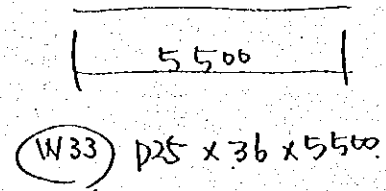 5500
W33 D25 x 36 x 5500